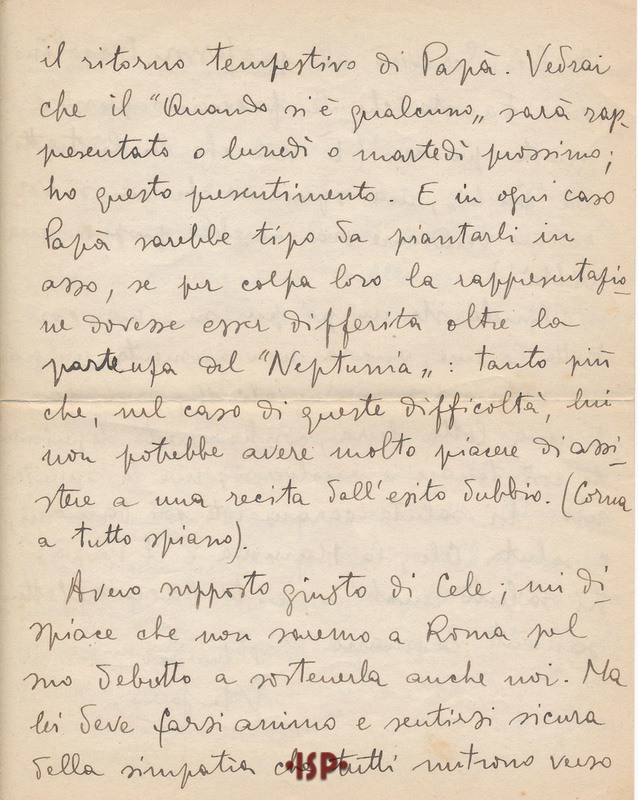 il ritorno tempestivo di Papà. Vedrai
che il "Quando si è qualcuno„ sarà rap-
presentato o lunedì o martedì prossimo;
ho questo presentimento. E in ogni caso
Papà sarebbe tipo da piantarli in
asso, se per colpa loro la rappresentazio-
ne dovesse esser differita oltre la
partenza del "Neptunia„: tanto più
che, nel caso di queste difficoltà, lui
non potrebbe avere molto piacere di assi-
stere a una recita dall'esito dubbio. (Corna
a tutto spiano).
Avevo supposto giusto di Cele; mi di-
spiace che non saremo a Roma pel
suo debutto a sostenerla anche noi. Ma
lei deve farsi animo e sentirsi sicura
della simpatia che tutti nutrono verso
·ISP·